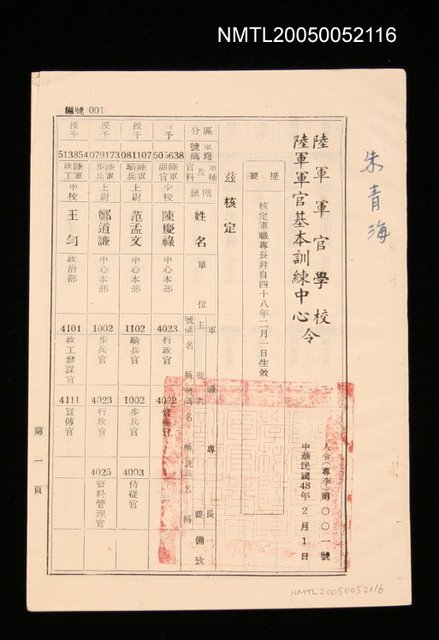 NMTL20050052116
編號 001
朱青海
陸軍軍官學校
陸軍軍官基本訓練中心令
人令(專李)第〇〇一號
中華民國48年2月1日
提要
核定軍職專長幷自四十八年二月一日生效
茲核定
區分
號碼
軍種及官科
階級
姓名
單位
主要
次要
軍職專長
號碼
名稱
備攷
授予
505638
陸軍
副官
少校
陳慶祿
中心本部
4023
行政官
4022
授予
081107
陸軍
騎兵
上尉
范孟文
中心本部
1102
騎兵官
1002
步兵官
4003
侍從官
授予
079173
陸軍
步兵
上尉
鄭道謙
中心本部
1002
步兵官
4023
行政官
4025
資料管理官
授予
513854
陸軍
政工
中校
王勻
政治部
4101
政工參謀官
4111
宣傳官
第一頁
NMTL20050052116